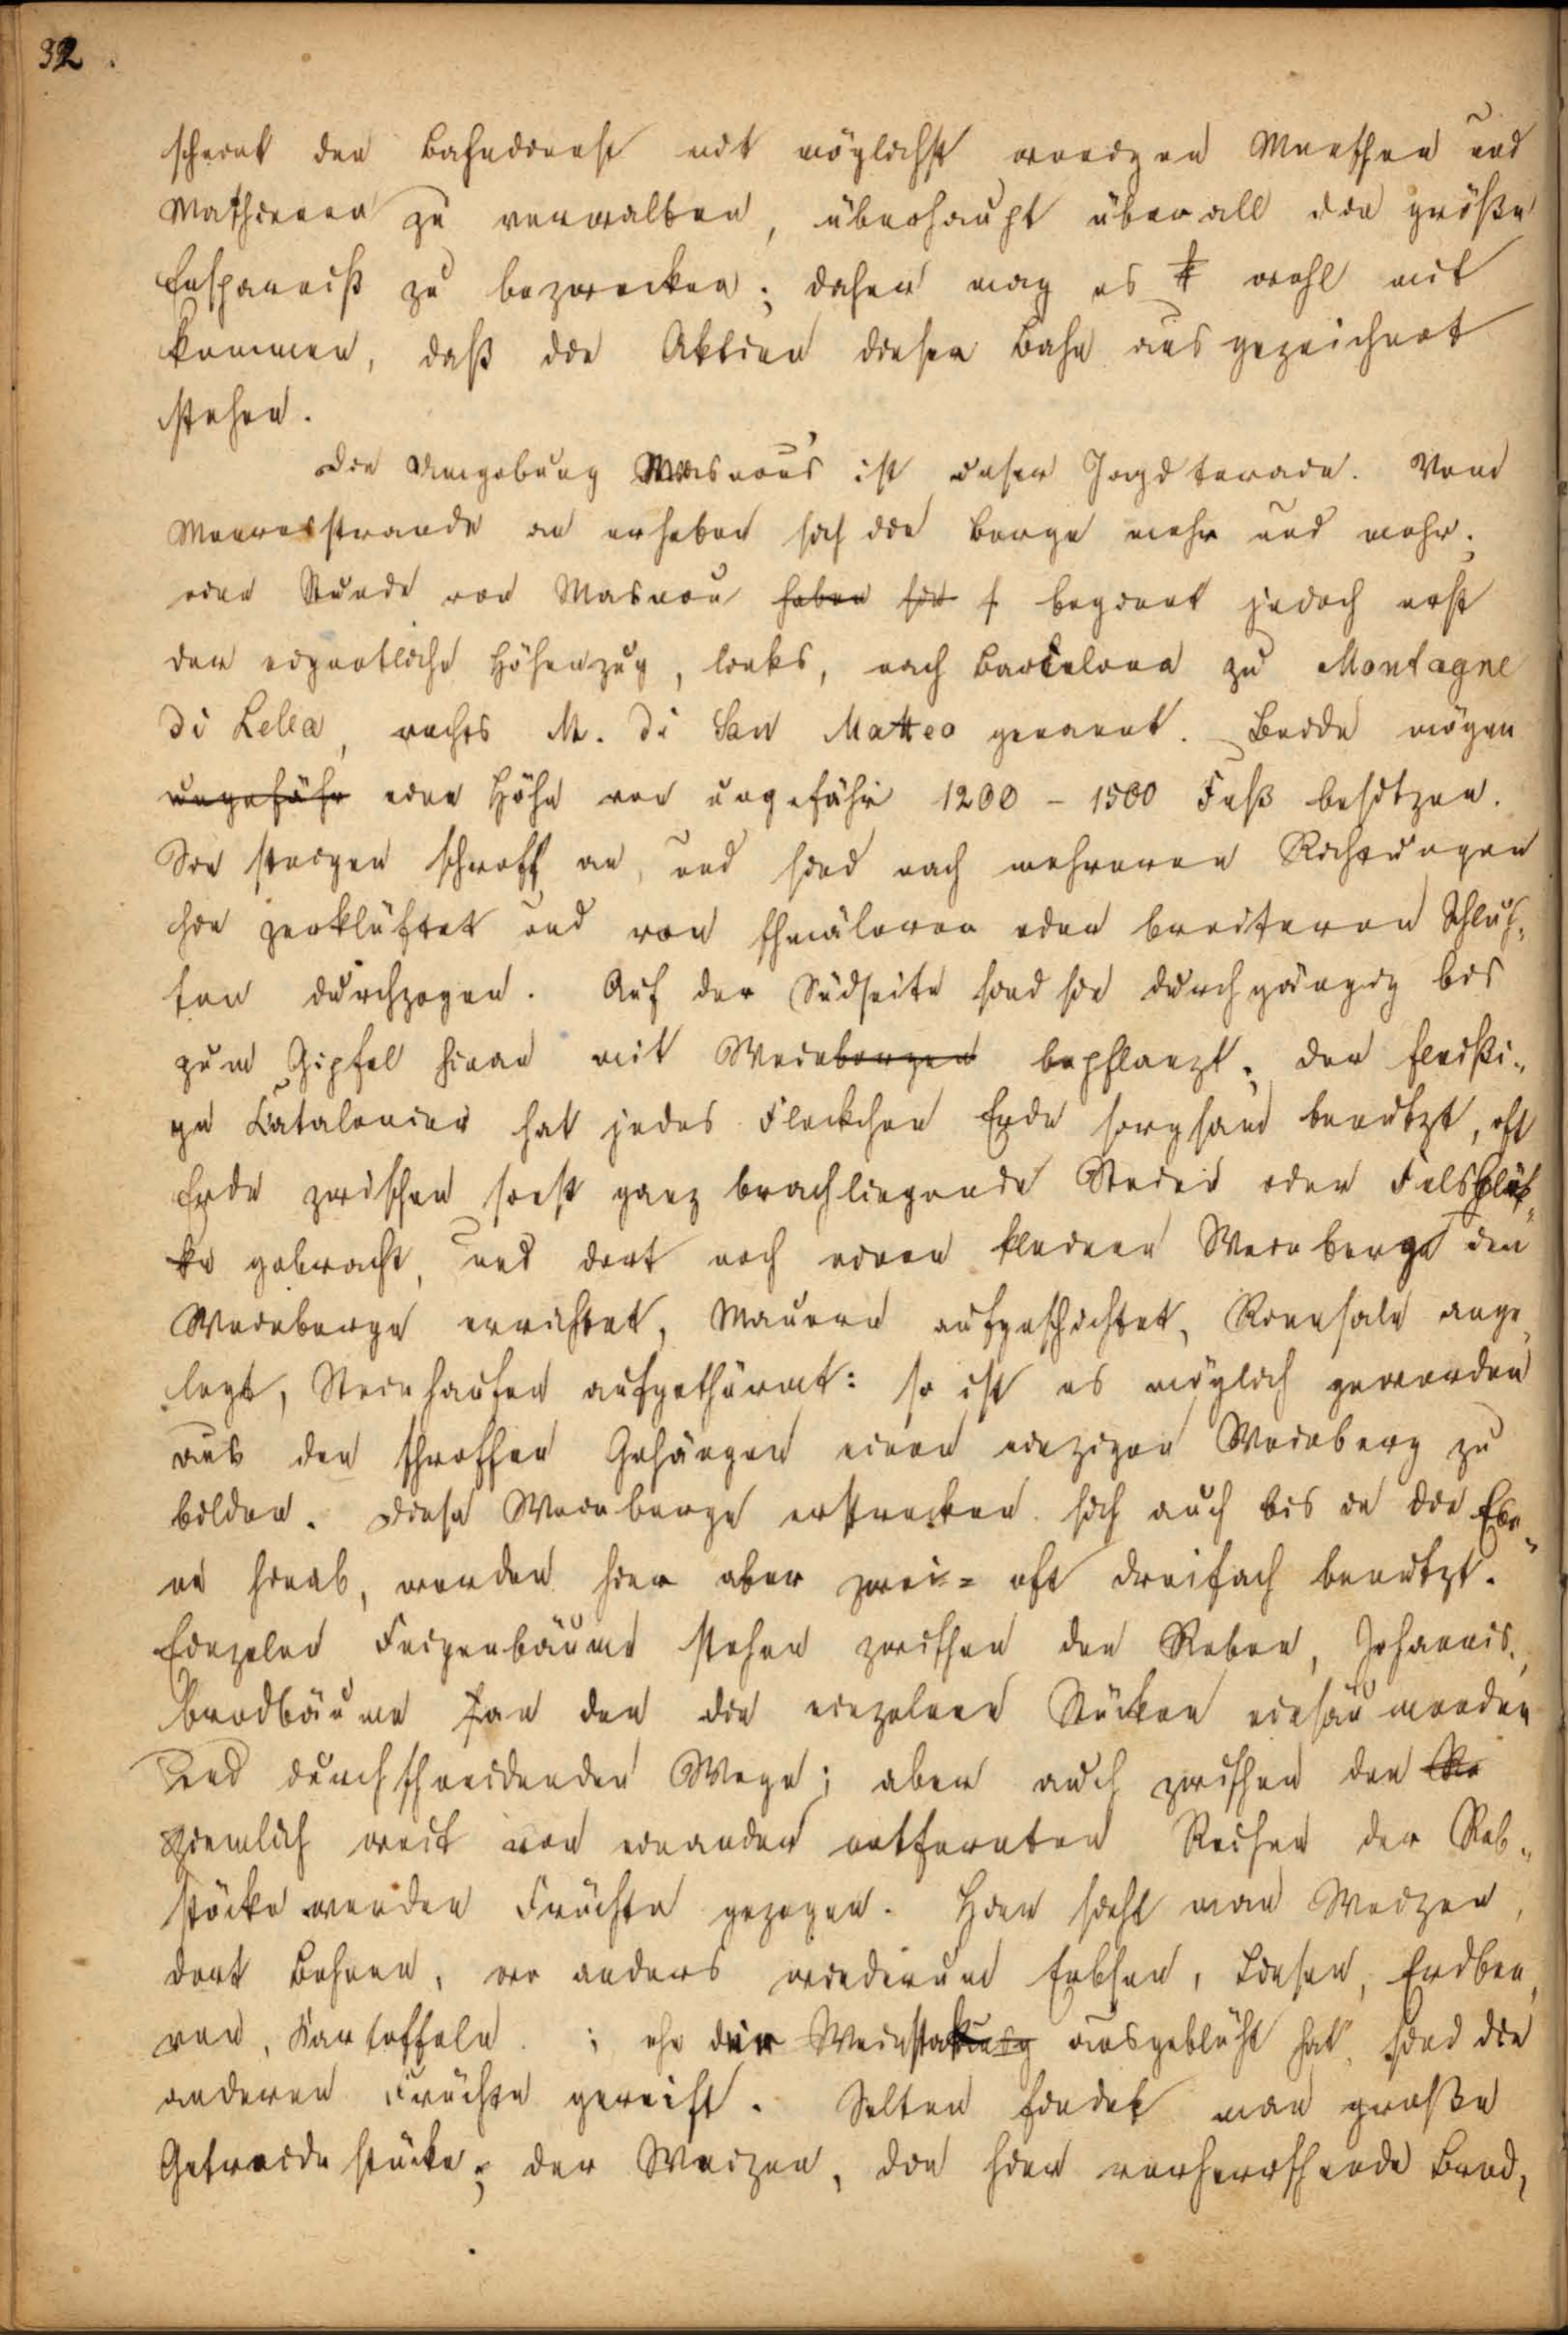 32.
scheint den Bahndienst mit möglichst wenigen Menschen und
Maschinen zu verwalten, überhaupt überall die größte
Ersparniß zu bezwecken; daher mag es wohl mit
kommen, daß die Aktien dieser Bahn ausgezeichnet
stehen.
Die Umgebung Masnou's ist unser Jagdterain. Vom
Meeresstrande an erheben sich die Berge mehr und mehr;
eine Stunde von Masnou haben sie beginnt jedoch erst
der eigentliche Höhenzug, links, nach Barcelona zu Montagne
di Lella, rechts M. di San Matteo genannt. Beide mögen
ungefähr eine Höhe von ungefähr 1200 - 1500 Fuß besitzen.
Sie steigen schroff an, und sind nach mehreren Richtungen
hin zerklüftet und von schmäleren oder breiteren Schluch-
ten durchzogen. Auf der Südseite sind sie durchgängig bis
zum Gipfel hinan mit Weinbergen bepflanzt; der fleißi-
ge Catalonier hat jedes Fleckchen Erde sorgsam benutzt, oft
Erde zwischen sonst ganz brachliegende Steine oder Felsblök-
ke gebracht, und dort noch einen kleinen Weinberge den
Weinberge errichtet, Mauern aufgeschichtet, Rinnsale ange-
legt, Steinhaufen aufgethürmt: so ist es möglich geworden
aus den schroffen Gehängen einen einzigen Weinberg zu
bilden. Diese Weinberge erstrecken sich auch bis in die Ebe-
ne hinab, werden hier aber zwei- oft dreifach benutzt.
Einzelne Feigenbäume stehen zwischen den Reben, Johannis-
brodbäume an den die einzelnen Stücken einsäumenden
und durchschneidenden Wege; aber auch zwischen den Re
ziemlich weit von einander entfernten Reihen der Reb-
stöcke werden Früchte gezogen. Hier sieht man Weizen,
dort Bohnen, wo anders wiederum Erbsen, Linsen, Erdbee-
ren, Kartoffeln.; ehe der Weinstock ausgeblüht hat, sind die
anderen Früchte gereift. Selten findet man große
Getreidestücke; der Weizen, die hier vorherrschende Brod-